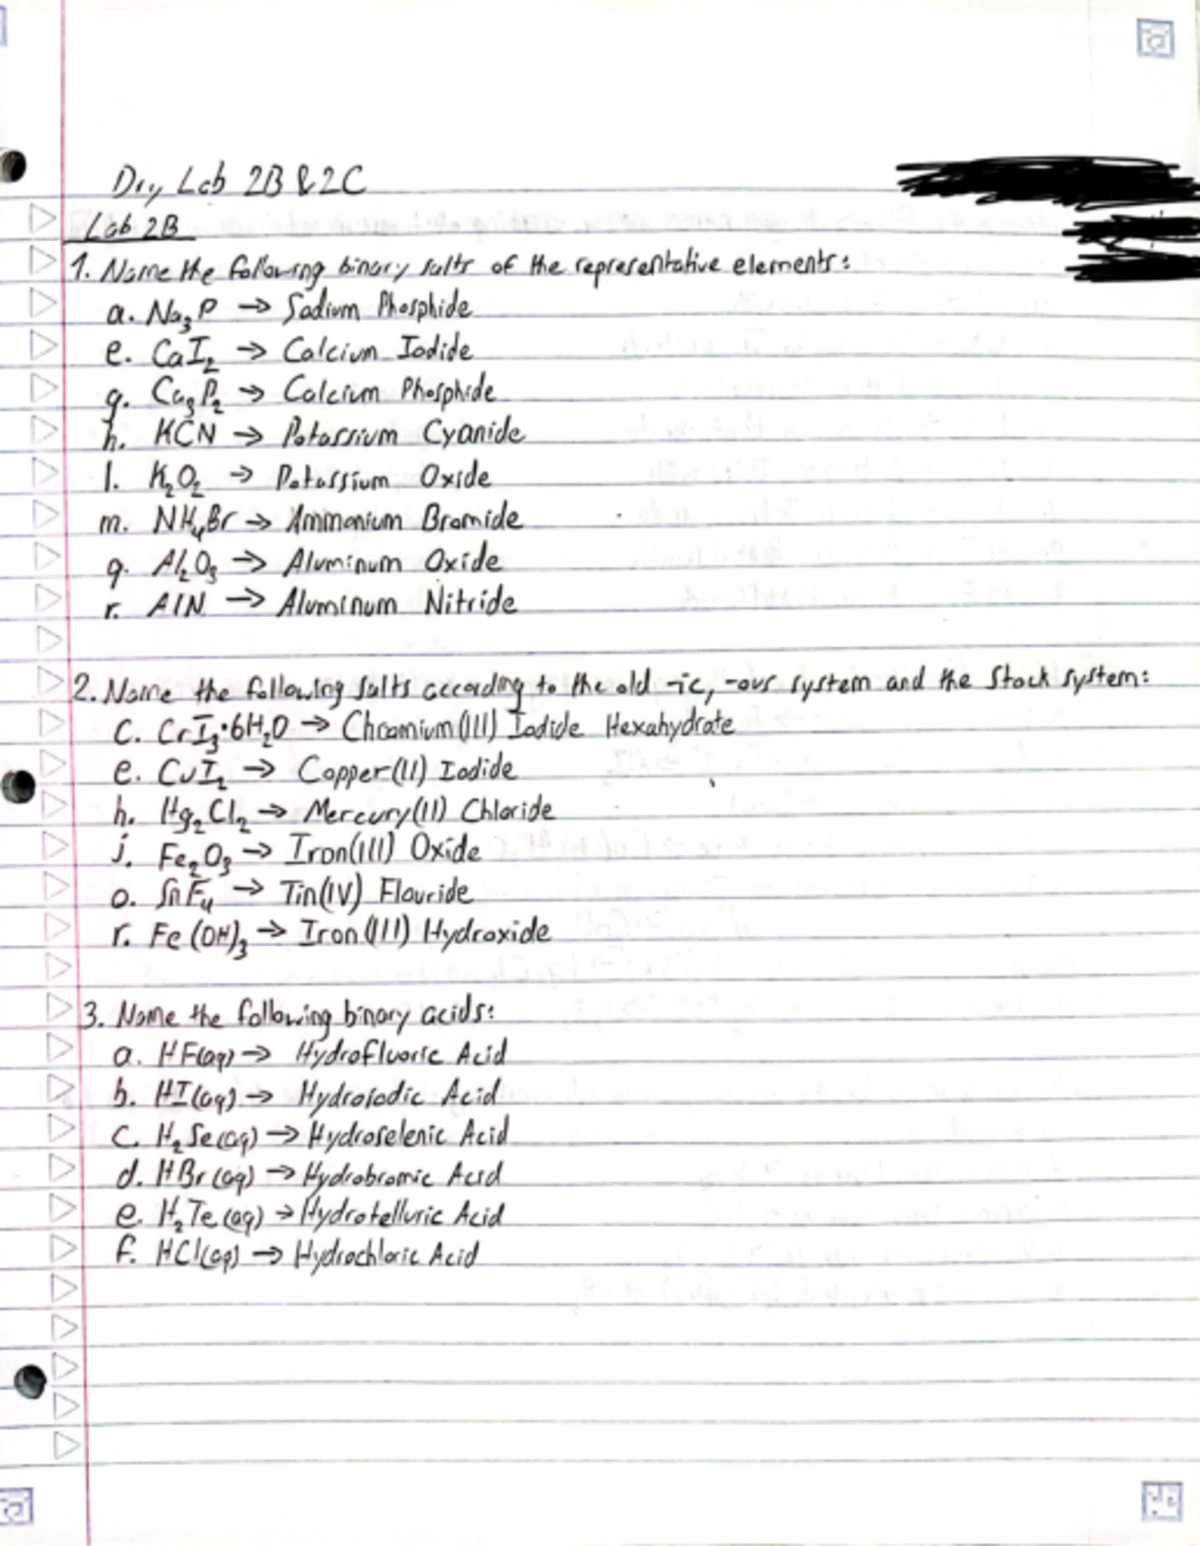 Dry Lab 2B & 2C
Lab 2B
1. Name the following binary salts of the representative elements:
a. Na₃P → Sodium Phosphide
e. CaI₂ → Calcium Iodide
g. Ca₃P₂ → Calcium Phosphide
h. KCN → Potassium Cyanide
l. K₂O₂ → Potassium Oxide
m. NH₄Br → Ammonium Bromide
q. Al₂O₃ → Aluminum Oxide
r. AlN → Aluminum Nitride
2. Name the following salts according to the old -ic, -ous system and the Stock system:
C. CrI₃•6H₂O → Chromium(III) Iodide Hexahydrate
e. CuI₂ → Copper(II) Iodide
h. Hg₂Cl₂ → Mercury(II) Chloride
j. Fe₂O₃ → Iron(III) Oxide
o. SnF₄ → Tin(IV) Flouride
r. Fe(OH)₃ → Iron(III) Hydroxide
3. Name the following binary acids:
a. HF(aq) → Hydrofluoric Acid
b. HI(aq) → Hydroiodic Acid
C. H₂Se(aq) → Hydroselenic Acid
d. HBr(aq) → Hydrobromic Acid
e. H₂Te(aq) → Hydrotelluric Acid
f. HCl(aq) → Hydrochloric Acid